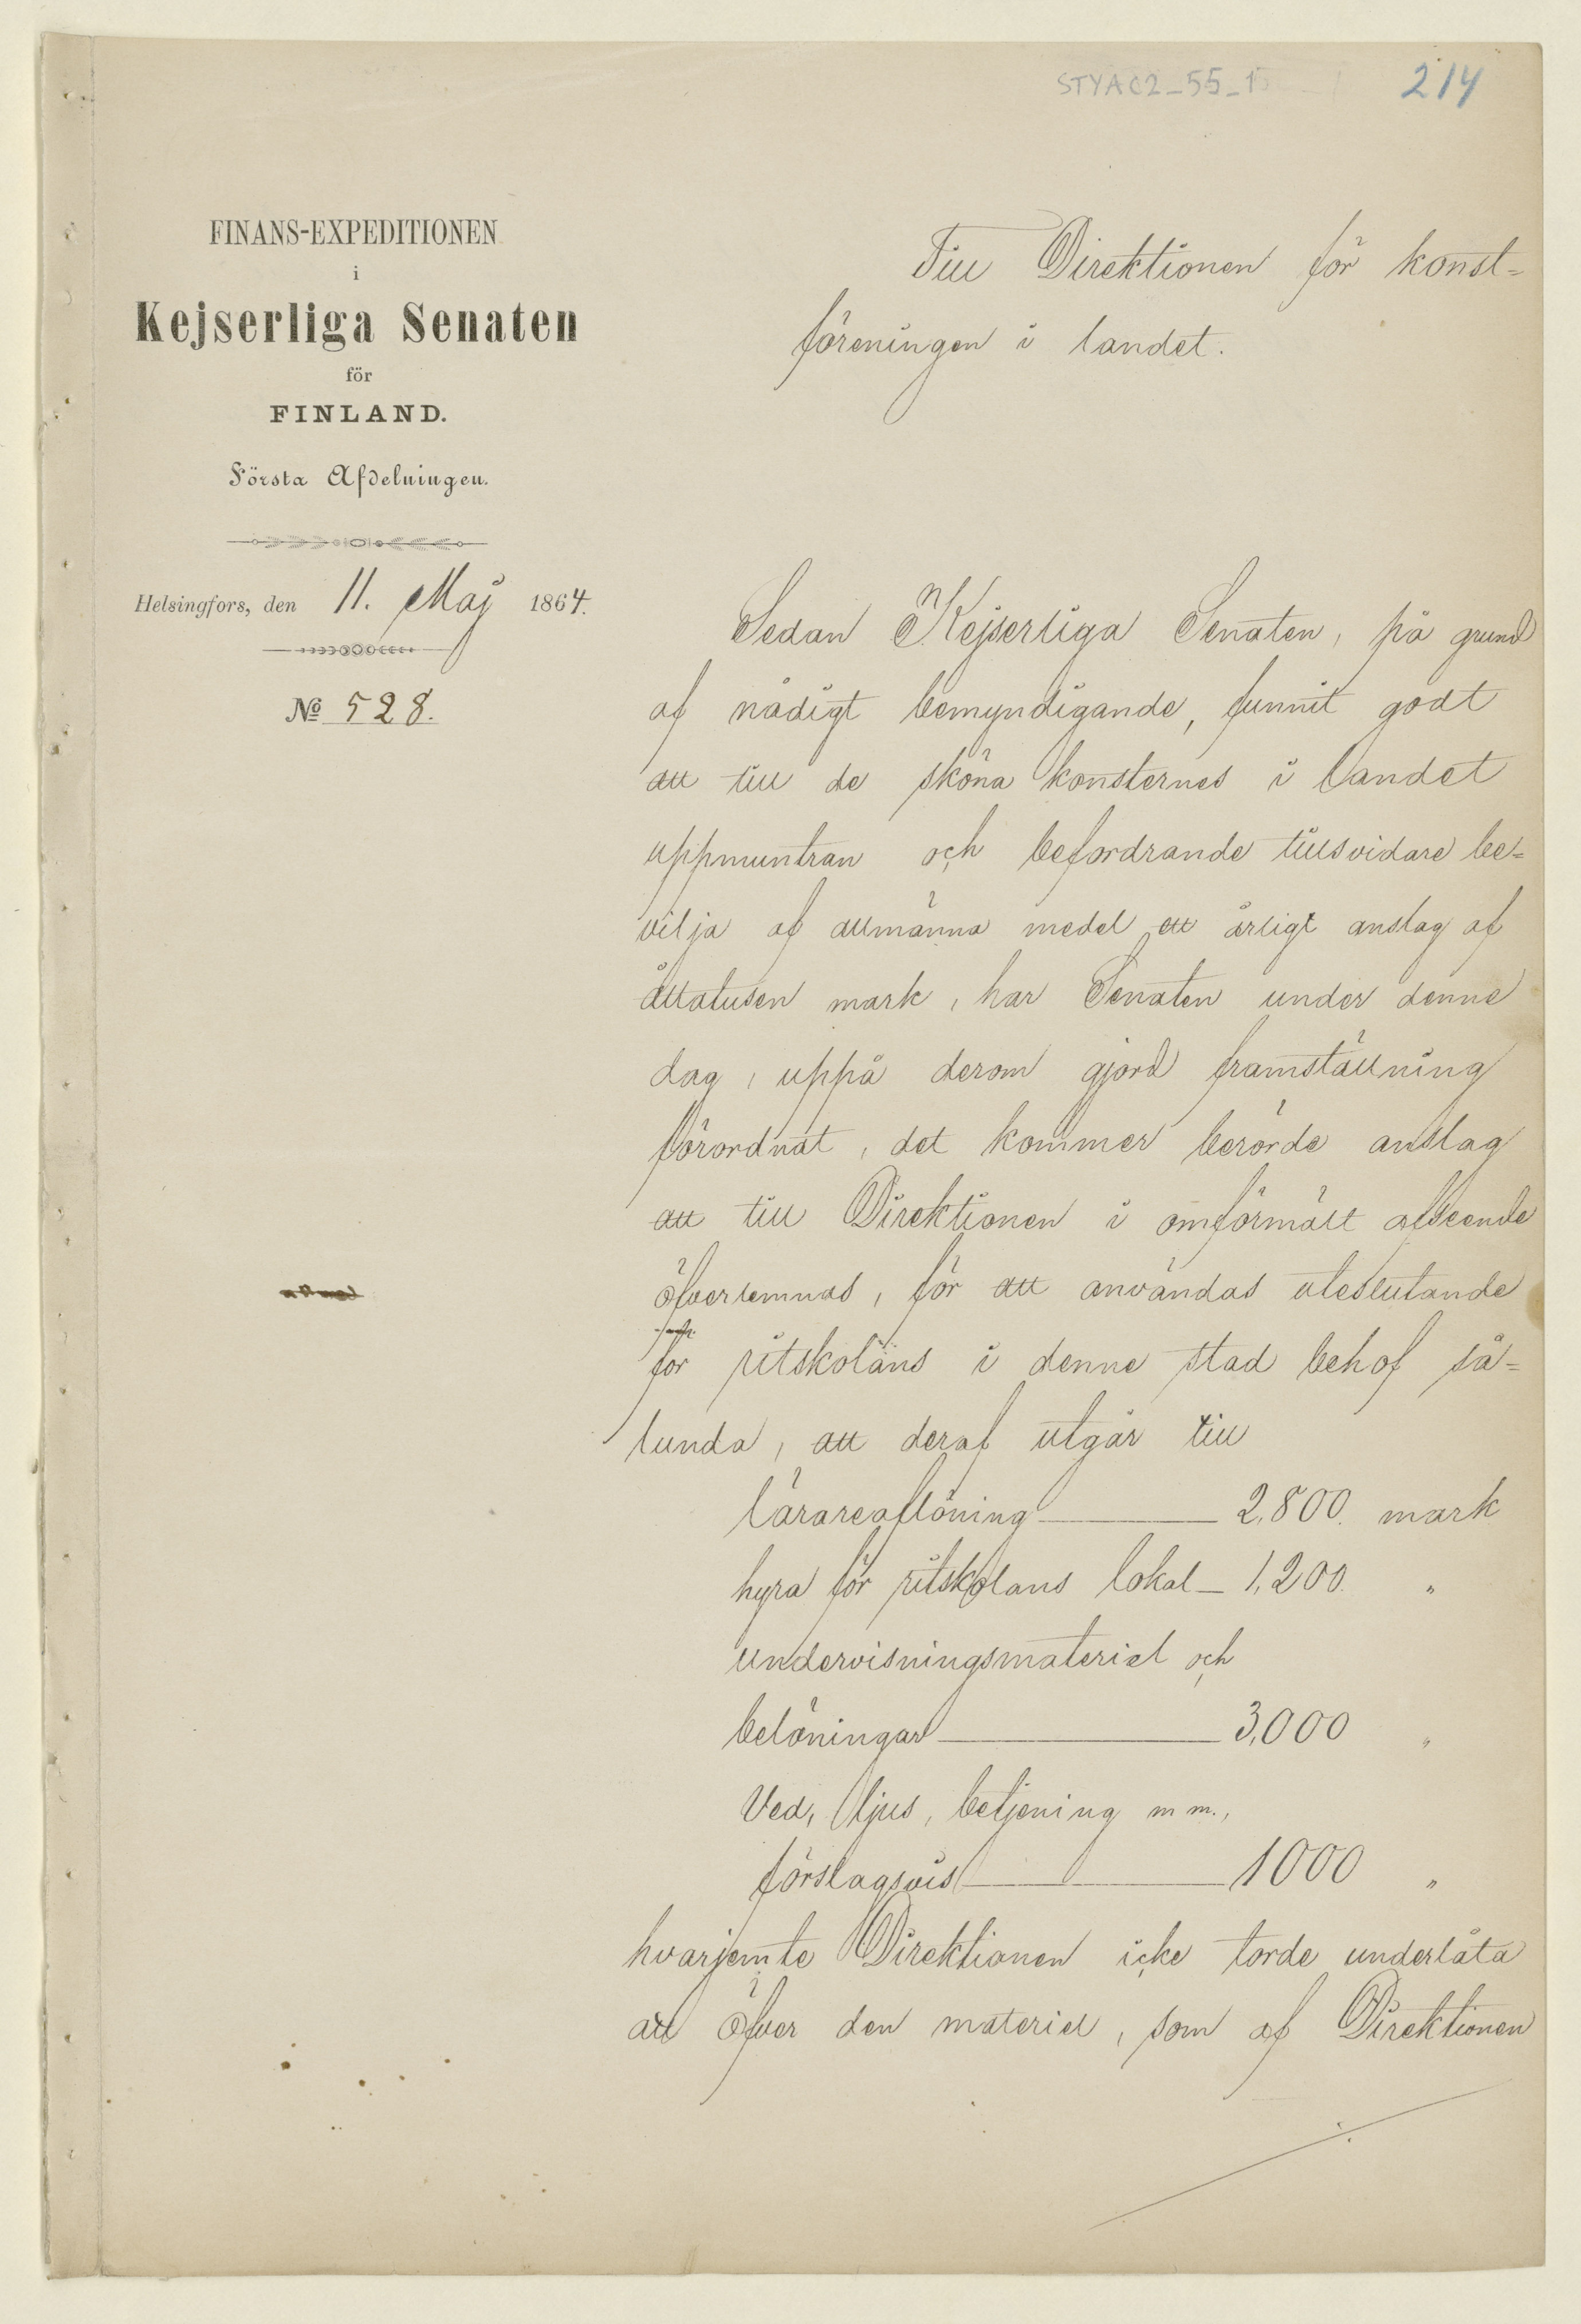 STYAC2_55_1
214
FINANS-EXPEDITIONEN
i
Kejserliga Senaten
för
FINLAND.
Första Afdelningen.
Helsingfors, den 11. Maj 1864.
No 528.
Till Direktionen för konst=
föreningen i landet.
Sedan Kejserliga Senaten, på grund
af nådigt bemyndigande, funnit godt
att till de sköna konsternes i landet
uppmuntran och befordrande tillsvidare be=
vilja af allmänna medel ett årligt anslag af
åttatusen mark, har Senaten under denne
dag, uppå derom gjord framställning
förordnat, det kommer berörde anslag
att till Direktionen i omförmält afseende
öfverlemnas, för att användas uteslutande
för ritskolans i denne stad behof så=
lunda, att deraf utgår till
lärareaflöning 2,800. mark
hyra för ritskolans lokal 1,200. "
undervisningsmateriel och
belöningar 3,000 "
Ved, ljus, betjening m m.,
förslagsvis 1000 "
hvarjemte Direktionen icke torde underlåta
att öfver den materiel, som af Direktionen